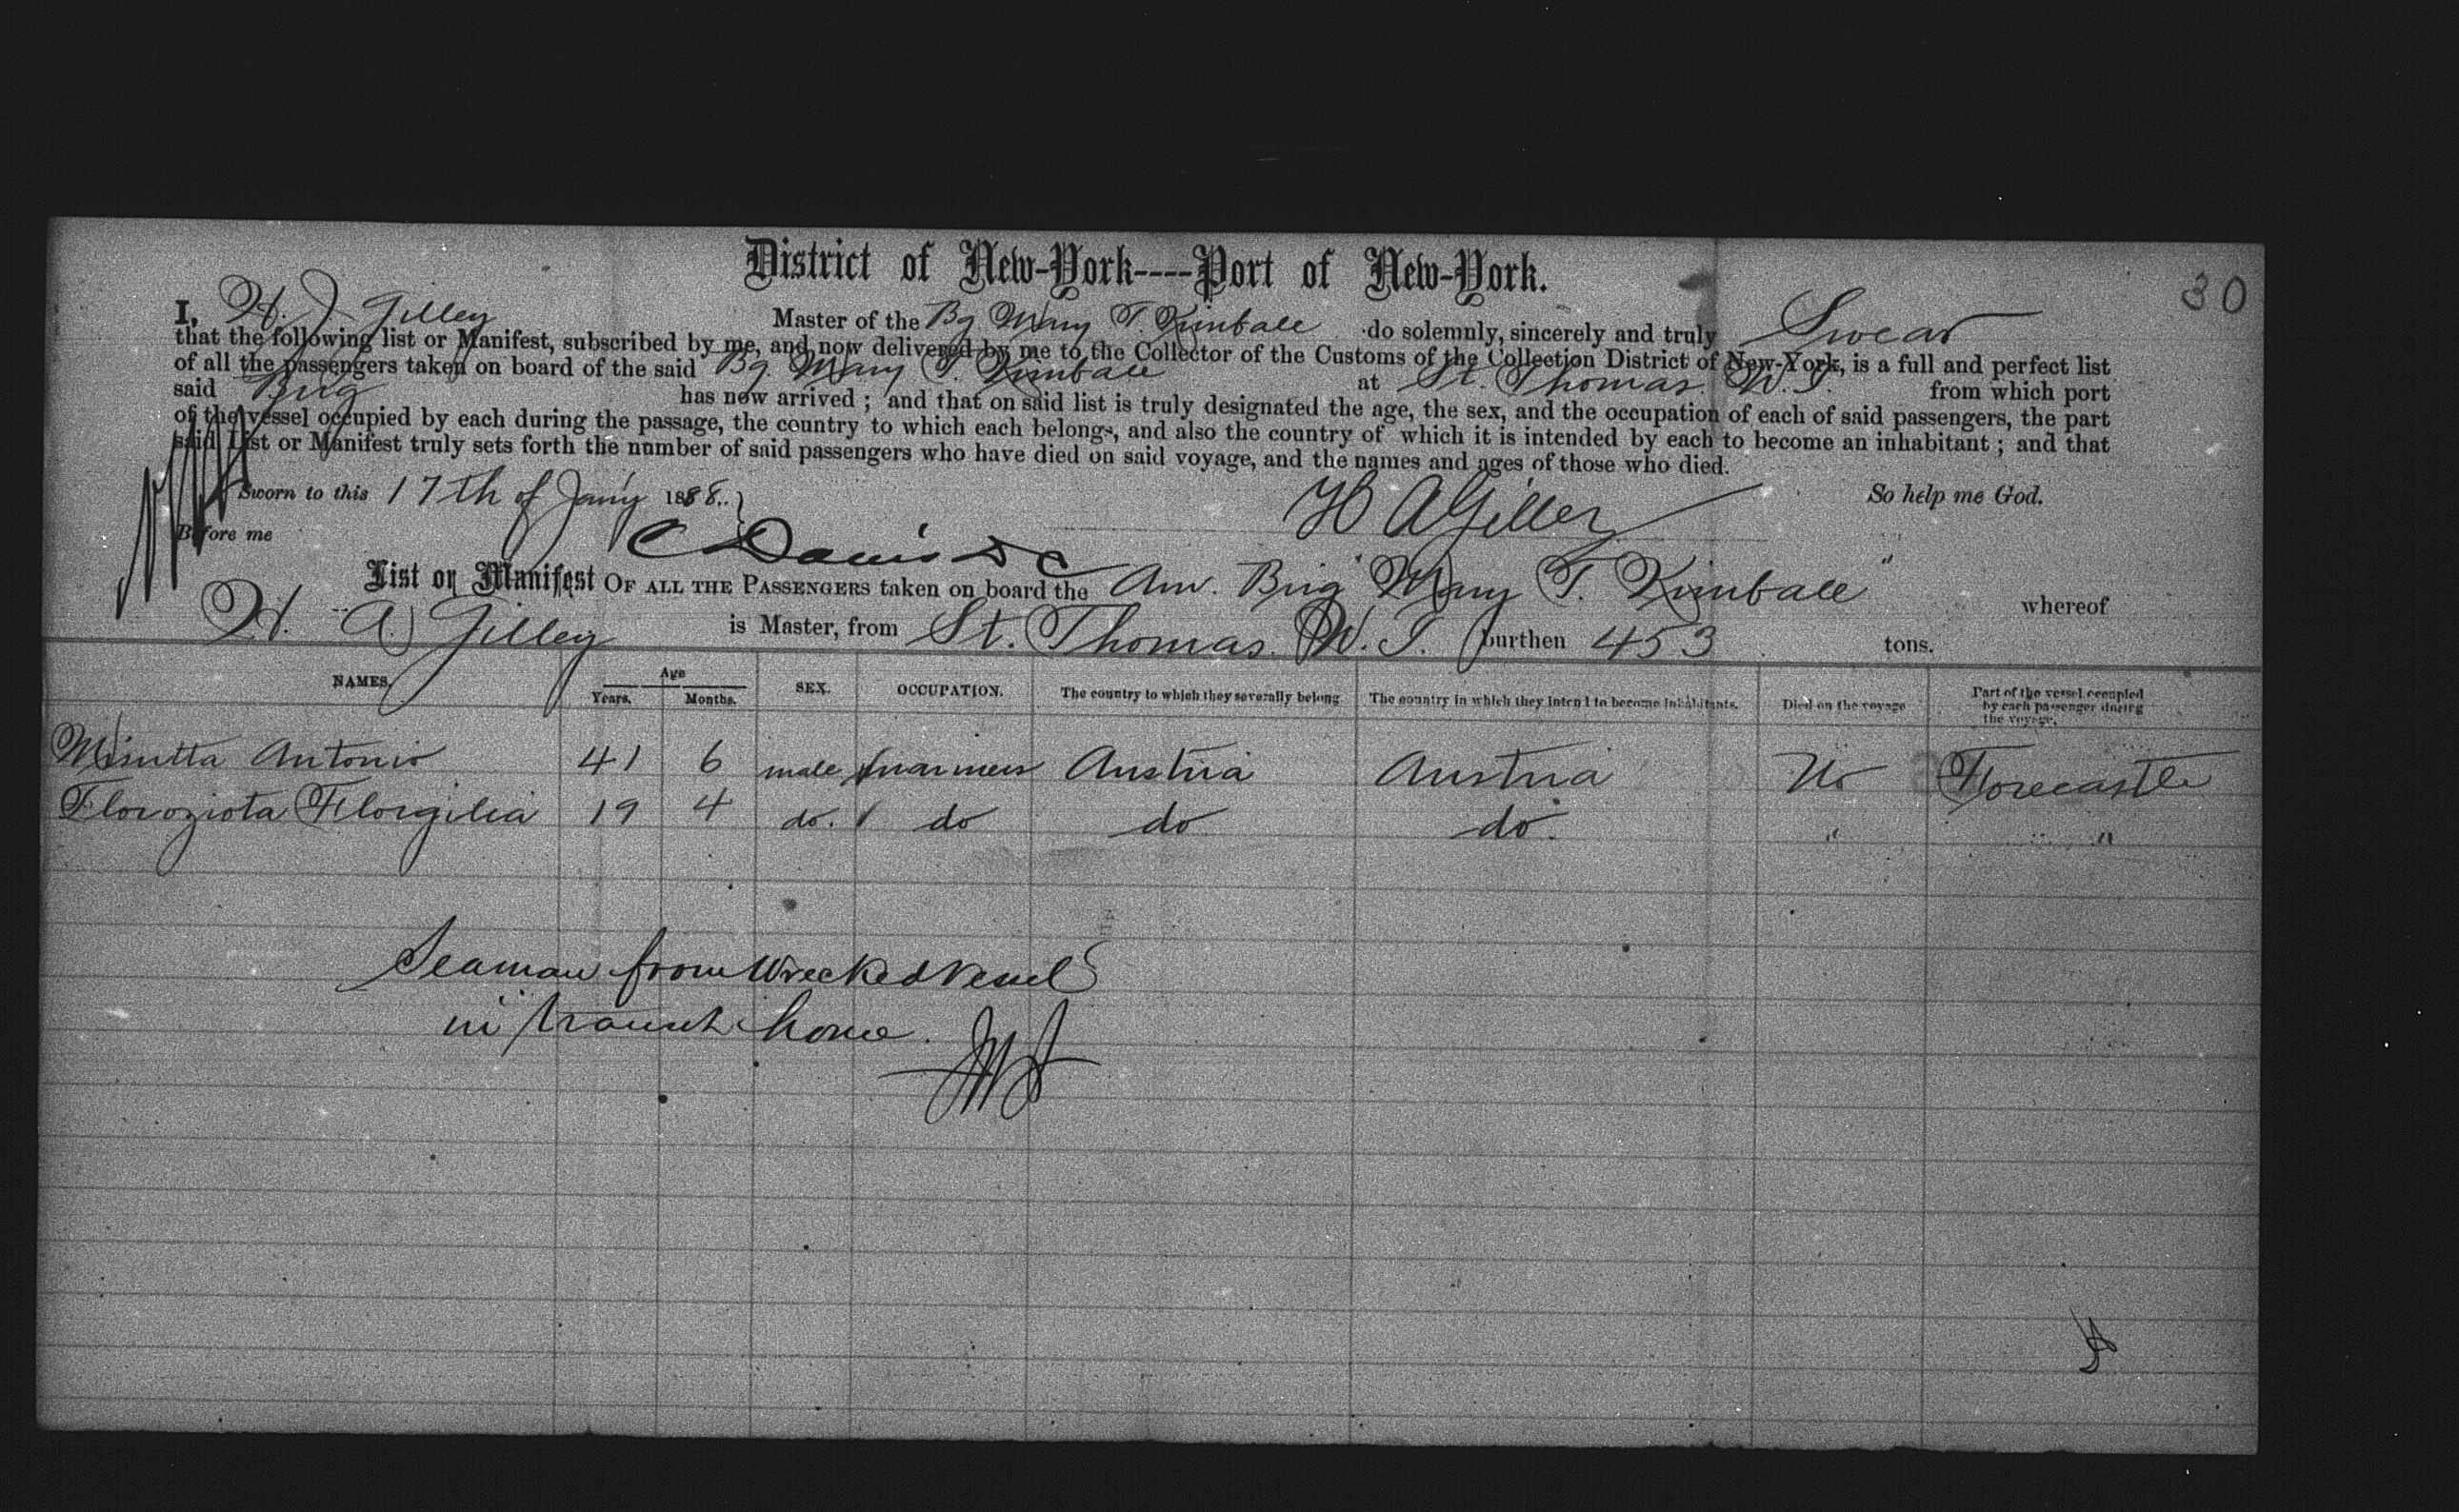 30
District of New-York----Port of New-York.
I, H. J. Gilley Master of the Bg Mary T. Kimball do solemnly, sincerely and truly Swear
that the following list or Manifest, subscribed by me, and now delivered by me to the Collector of the Customs of the Collection District of New-York, is a full and perfect list
of all the passengers taken on board of the said Bg. Mary T. Kimball at St. Thomas. W. I. from which port
said Brig has now arrived; and that on said list is truly designated the age, the sex, and the occupation of each of said passengers, the part
of the vessel occupied by each during the passage, the country to which each belongs, and also the country of which it is intended by each to become an inhabitant; and that
said List or Manifest truly sets forth the number of said passengers who have died on said voyage, and the names and ages of those who died.
Sworn to this 17th of Jan'y 1888. H A Gilley So help me God.
Before me C Davis D C
List or Manifest OF ALL THE PASSENGERS taken on board the Am. Brig "Mary T. Kimball" whereof
H. A. Gilley is Master, from St. Thomas. W. I. burthen 453 tons.
NAMES. Age Years. Months. SEX. OCCUPATION. The country to which they severally belong The country in which they intend to become inhabitants. Died on the voyage Part of the vessel occupied by each passenger during the voyage.
Misutta Antonio 41 6 male mariners Austria Austria No Forecastle
Floroziota Florgilia 19 4 do. do do do. " " "
Seaman from Wrecked Vessel
in transit home.